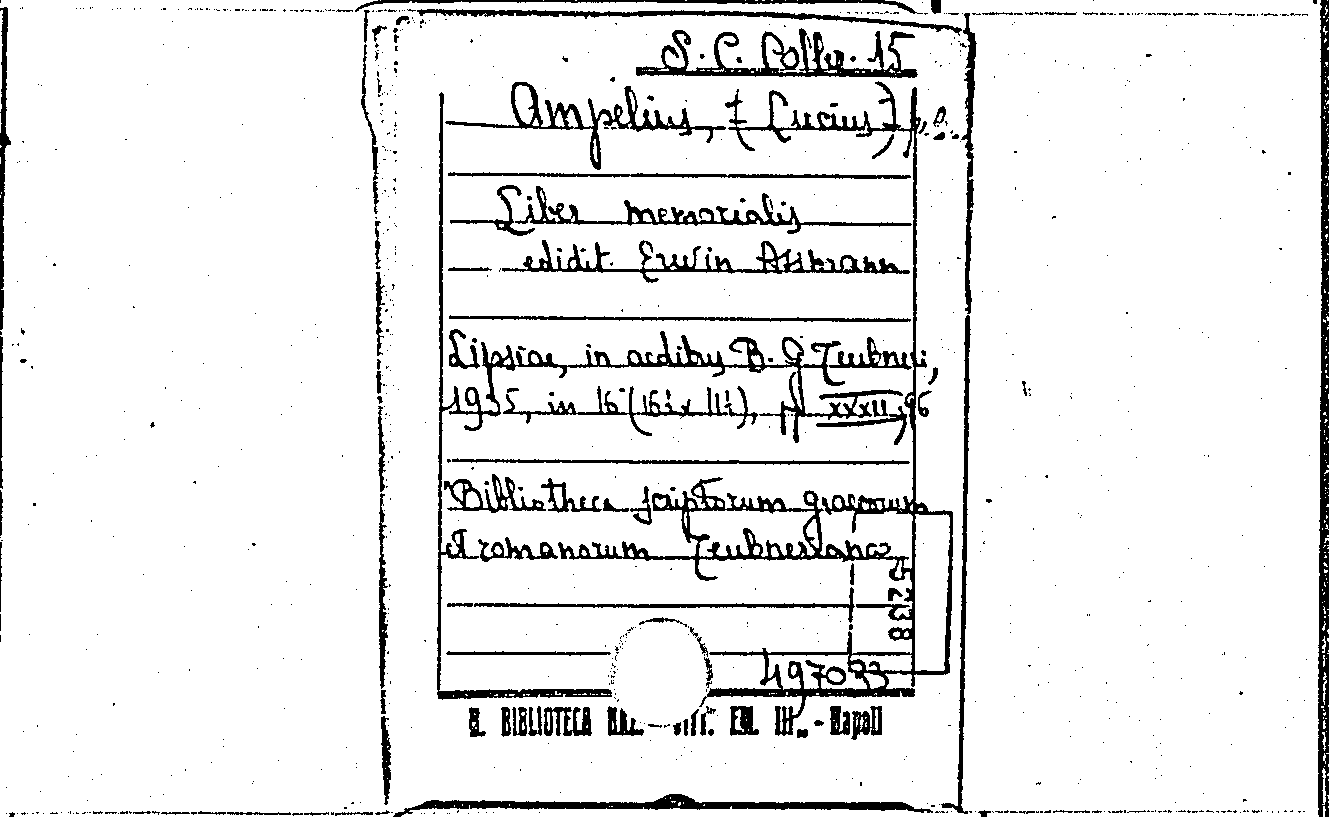 S. C. Coller. 15
Ampelius, ‡ (Lucius) ‡
Liber memorialis
edidit Erwin Assmann
Lipsiae, in aedibus B. G Teubneri,
1935, in 16° (16½ x 11½), pp XXXII, 96
Bibliotheca scriptorum graecorum
et romanorum Teubneriana
5238
497033
R. BIBLIOTECA NAZ. VITT. EM. III.. - Napoli